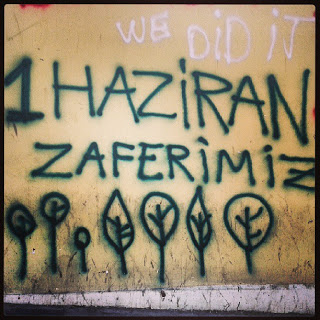 WE DiD iT
1 HAZiRAN
ZAFERiMiZ